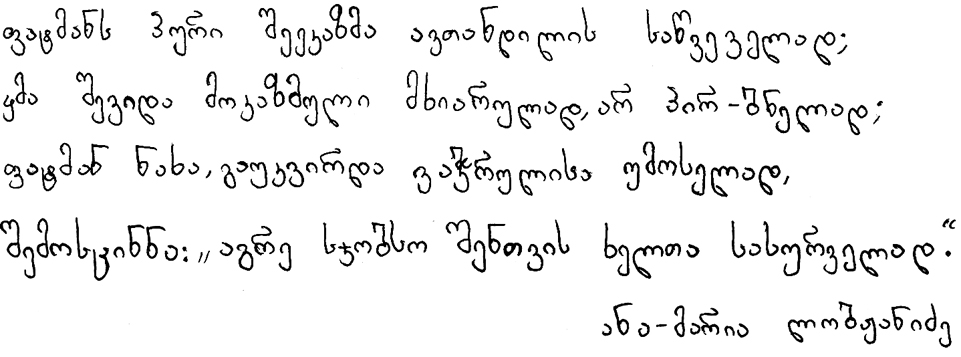 ფატმანს პური შეეკაზმა ავთანდილის საწვეველად;
ყმა შევიდა მოკაზმული მხიარულად, არ პირ-ბნელად;
ფატმან ნახა, გაუკვირდა ვაჭრულისა უმოსელად,
შემოსცინნა: „აგრე სჯობსო შენთვის ხელთა სასურველად“.
ანა-მარია ლობჟანიძე